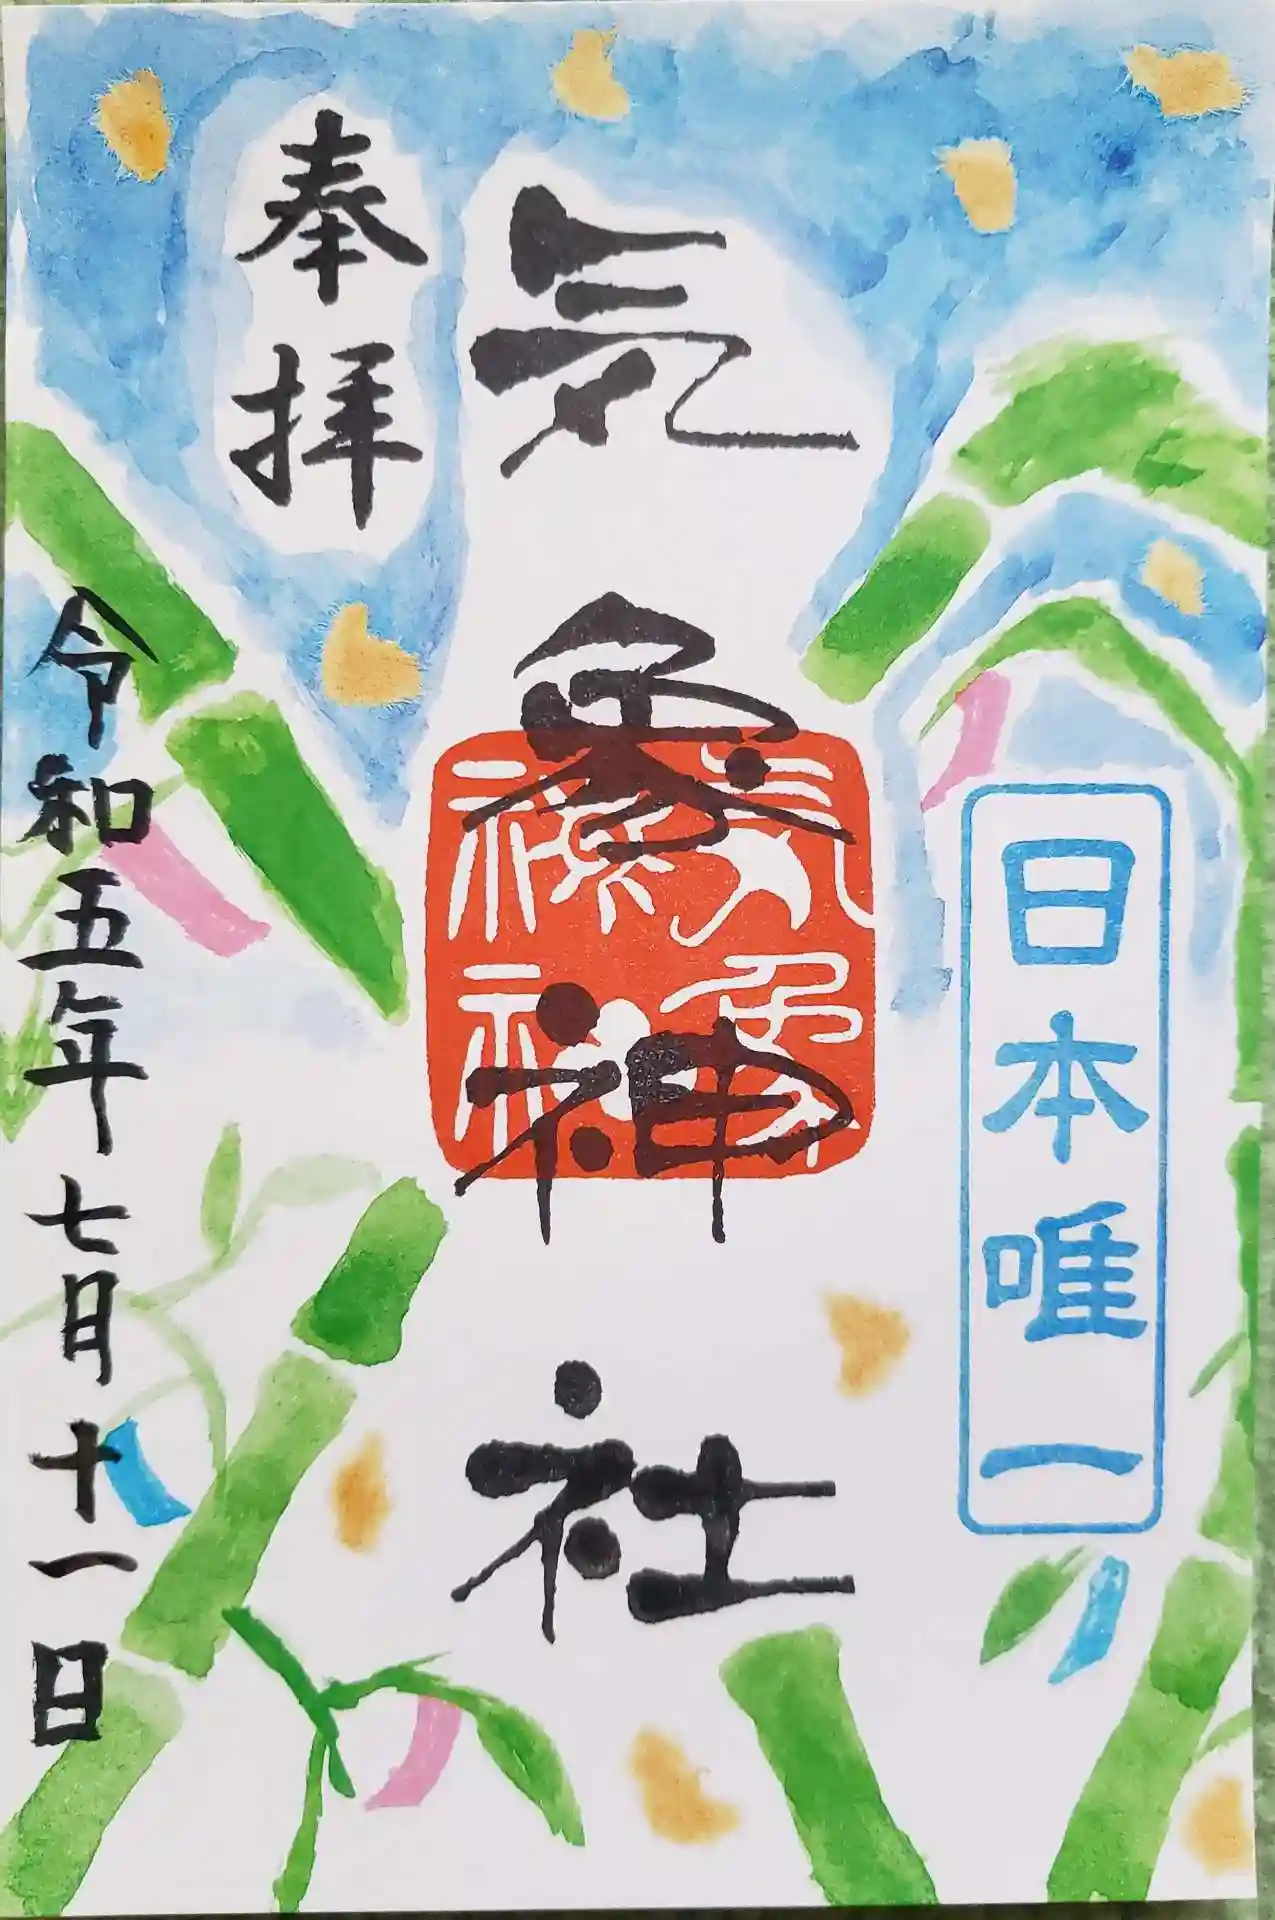 日本唯一
気象神社
気象
神社
奉拝
令和五年七月十一日